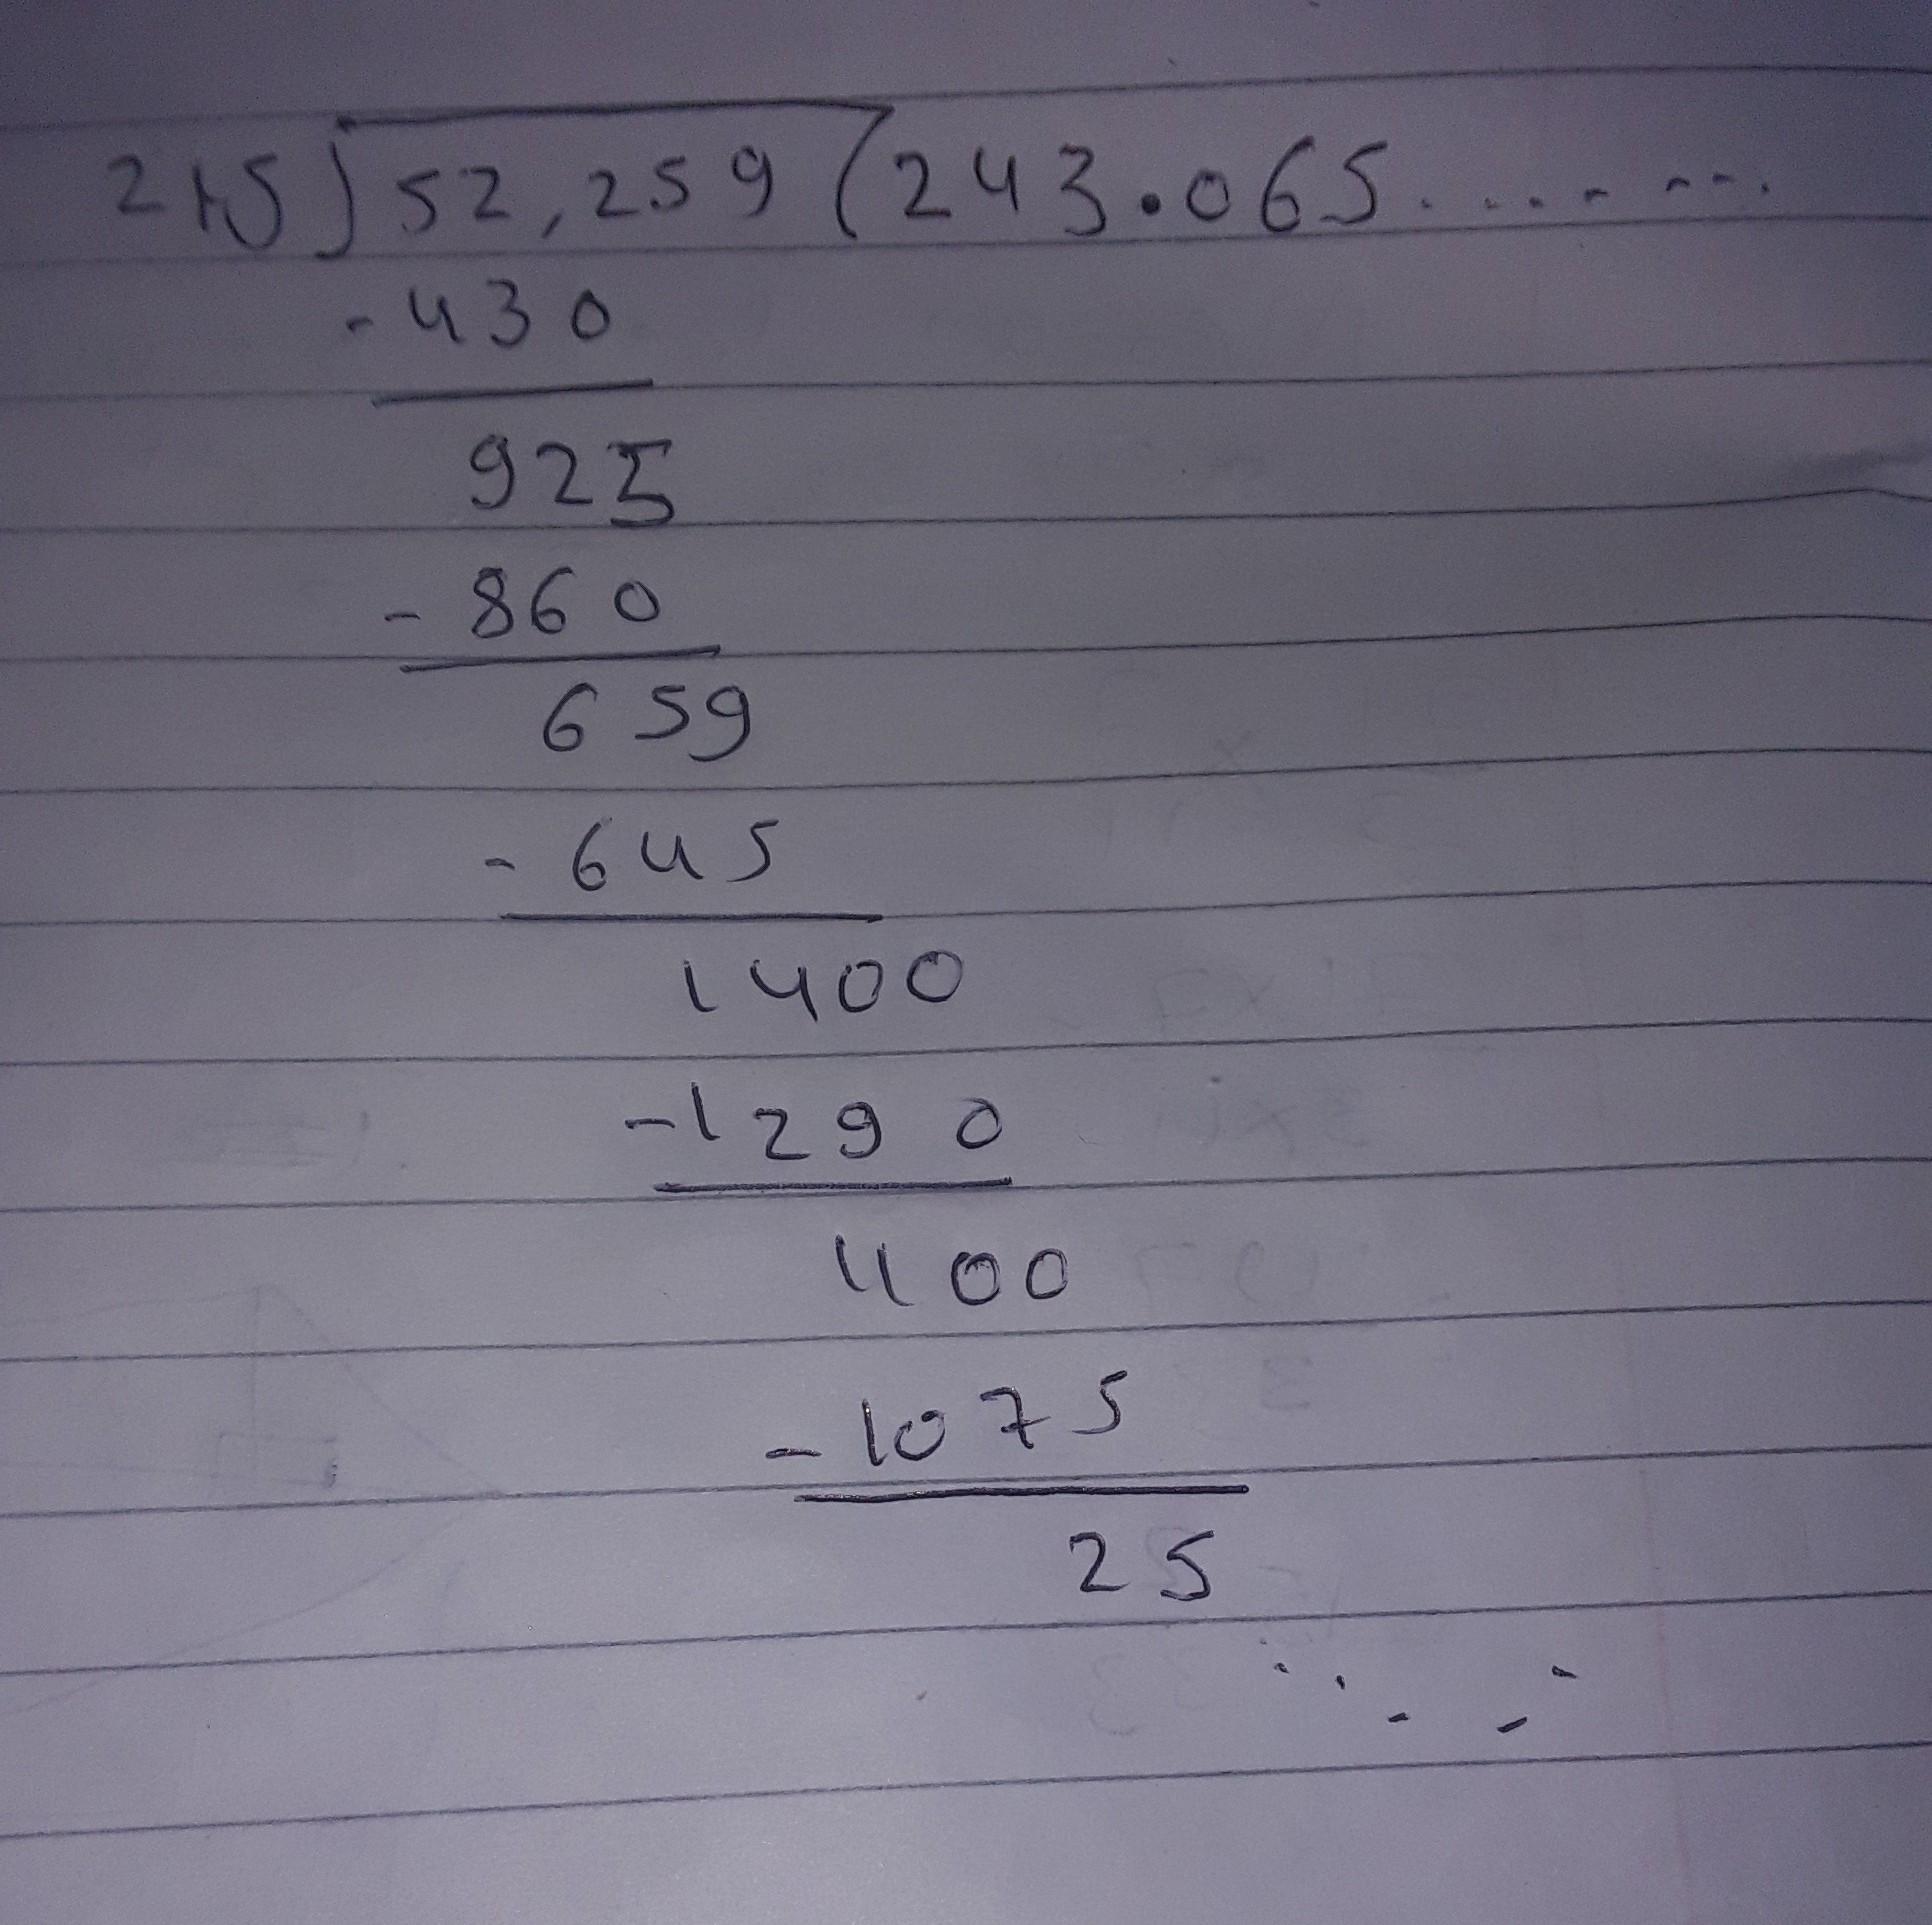 215)52,259(243.065..........
-430
925
-860
659
-645
1400
-1290
1100
-1075
25